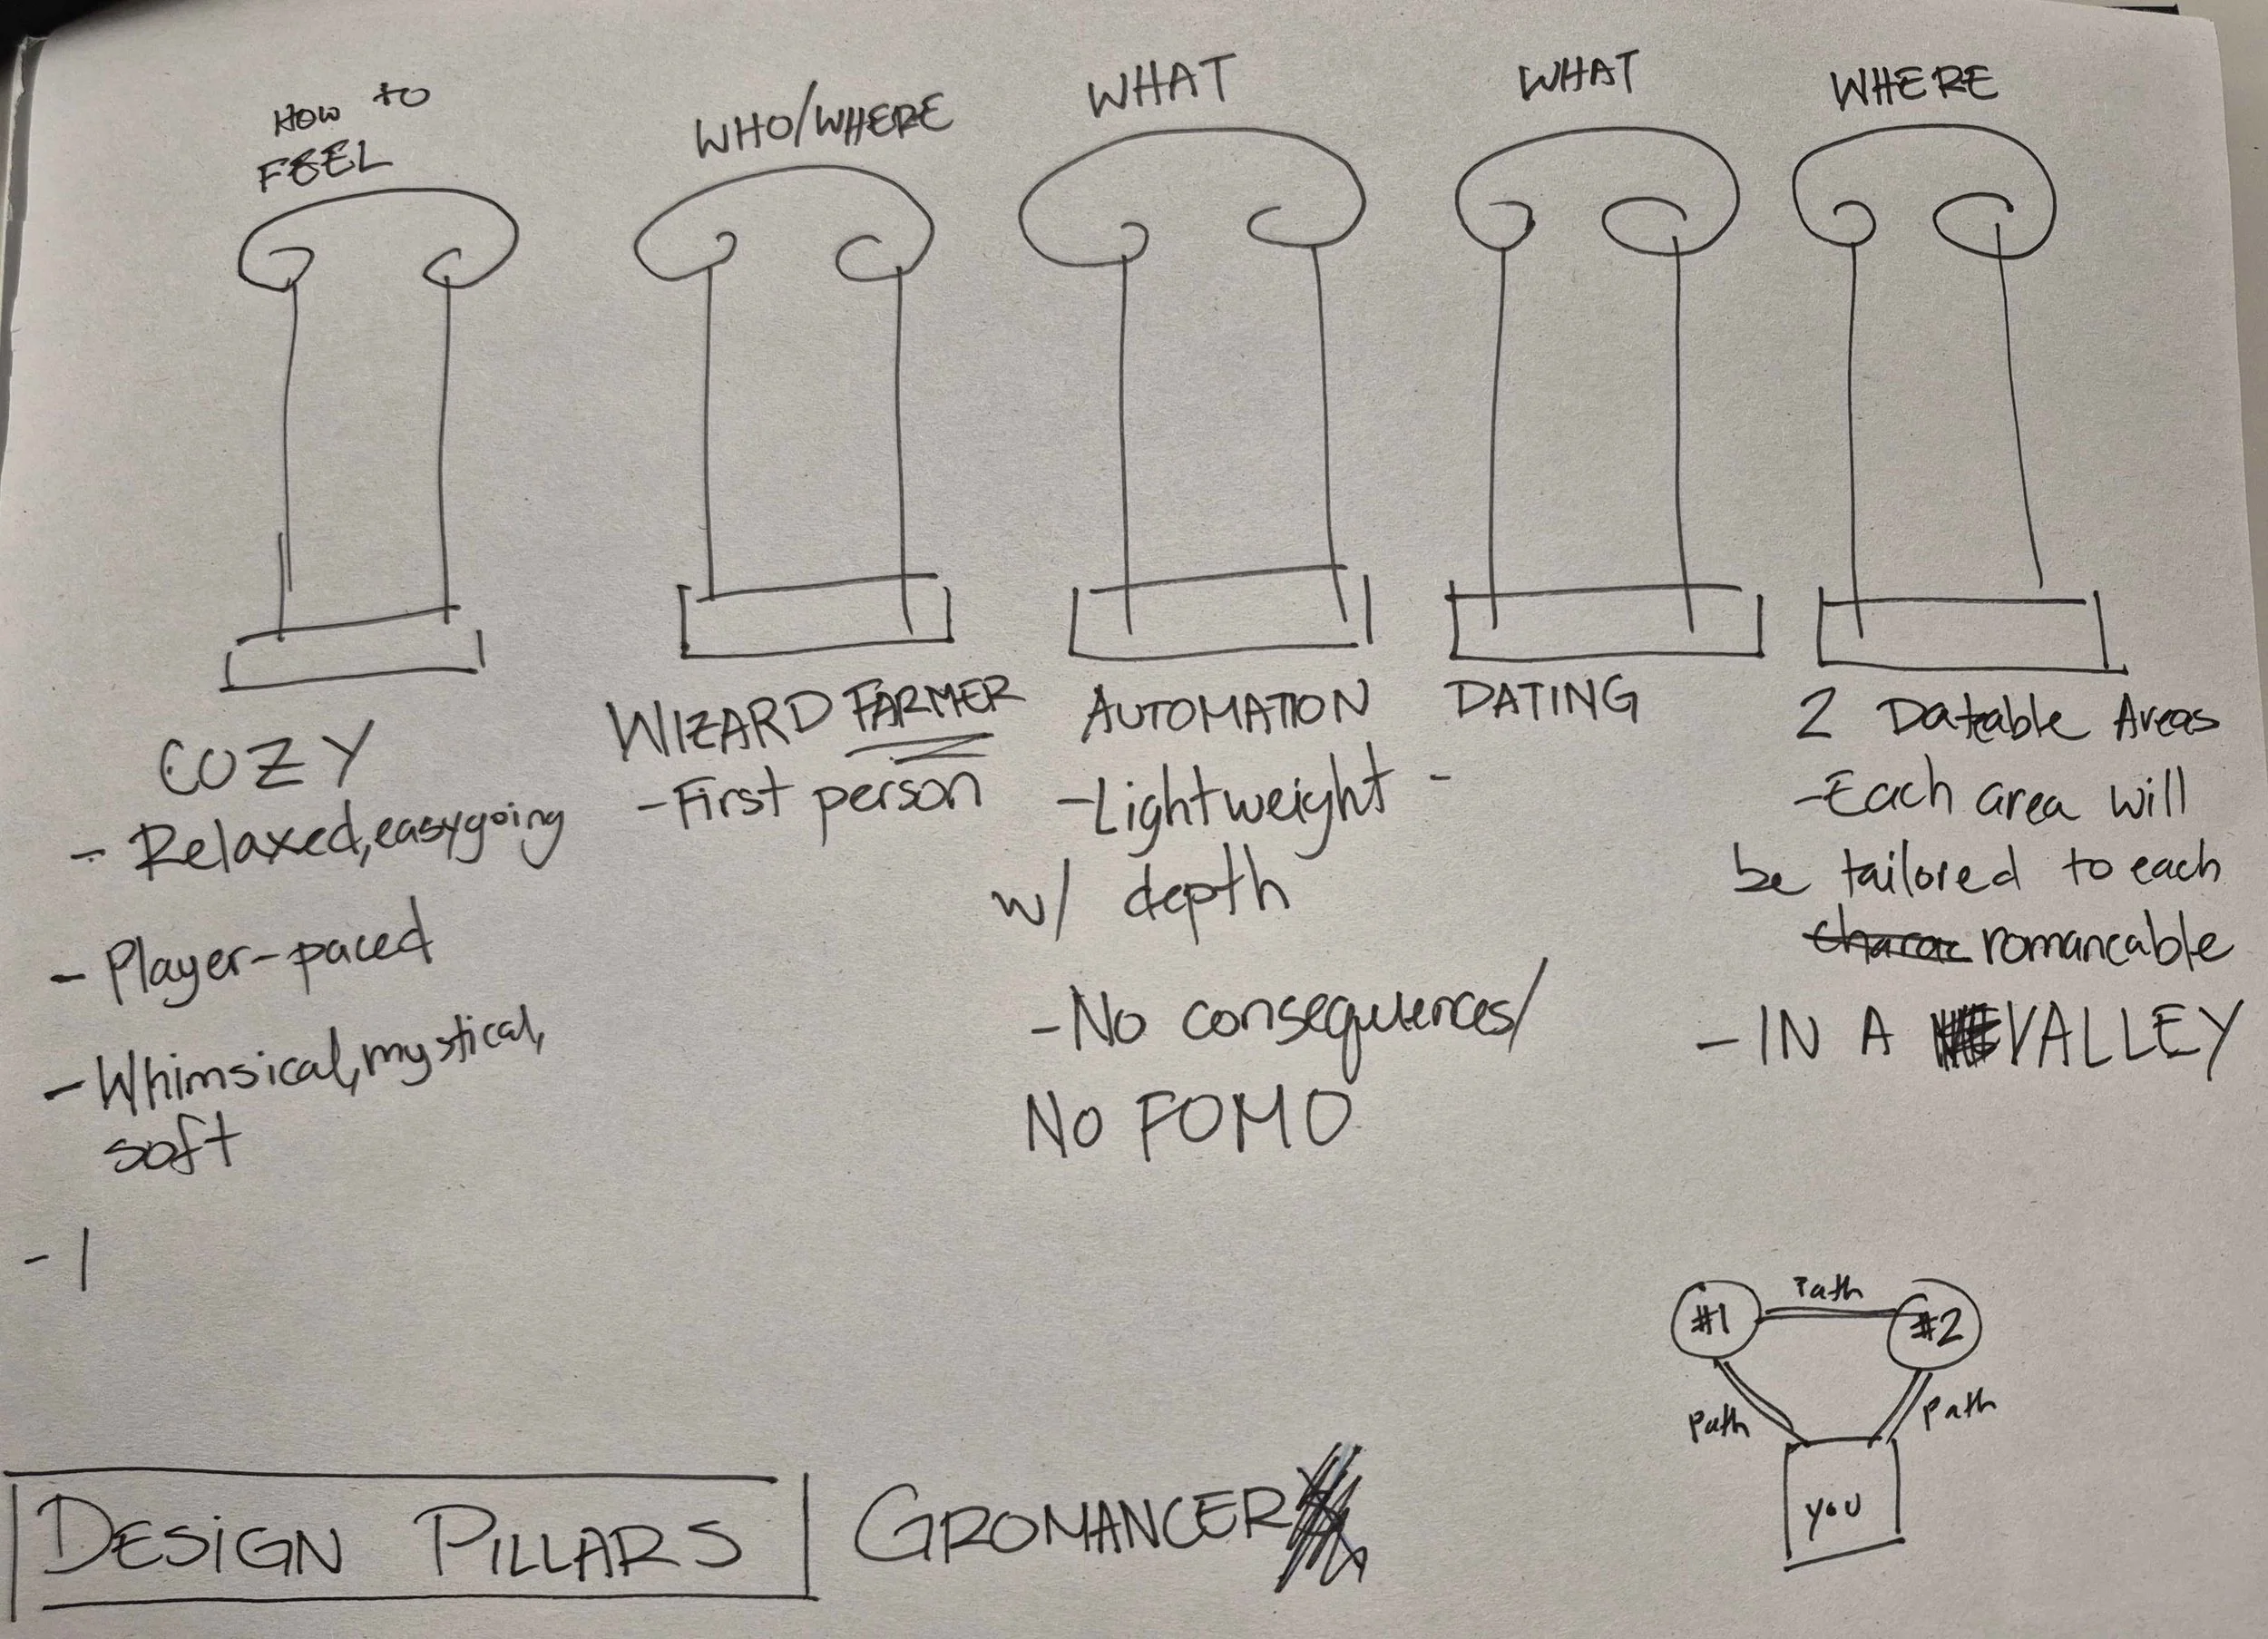 HOW to
FEEL
COZY
- Relaxed, easygoing
- Player-paced
- Whimsical, mystical,
soft
- |
WHO/WHERE
WIZARD FARMER
- First person
WHAT
AUTOMATION
- Lightweight -
w/ depth
- No consequences/
No FOMO
WHAT
DATING
WHERE
2 Dateable Areas
- Each area will
be tailored to each
charac romancable
- IN A VALLEY
#1 Path #2
Path Path
you
DESIGN PILLARS GROMANCER